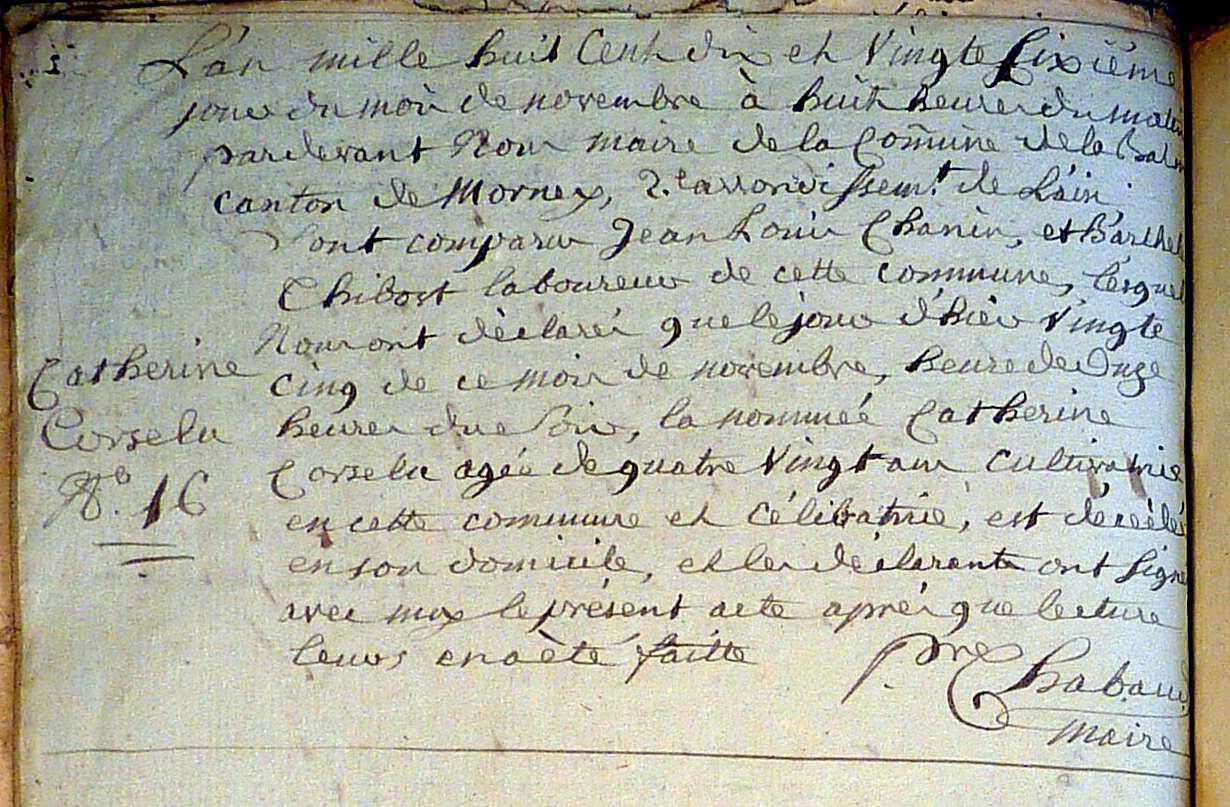 L'an mille huit Cent dix et Vingte Sixième
jour du mois de novembre à huit heures du matin
pardevant Nous maire de la Comune de la Balm
canton de Mornex, arrondissemt de L'ain
Sont comparu Jean Louis Chanin, et Barthel
Chibost laboureur de cette commune, lesquel
Nous ont déclaréz que le jour d'hiér Vingte
cinq de ce mois de novembre, heure de Onze
heures due Soir, la nommée Catherine
Corselu agée de quatre Vingt ans Cultivatrie
en cette commune et Célibatrie, est décèdéé
en son domicile, et les déclarants ont Signé
avec moy le présent acte après que lecture
leurs en a èté faitte
Catherine
Corselu
No. 16
pre Chabaud
Maire